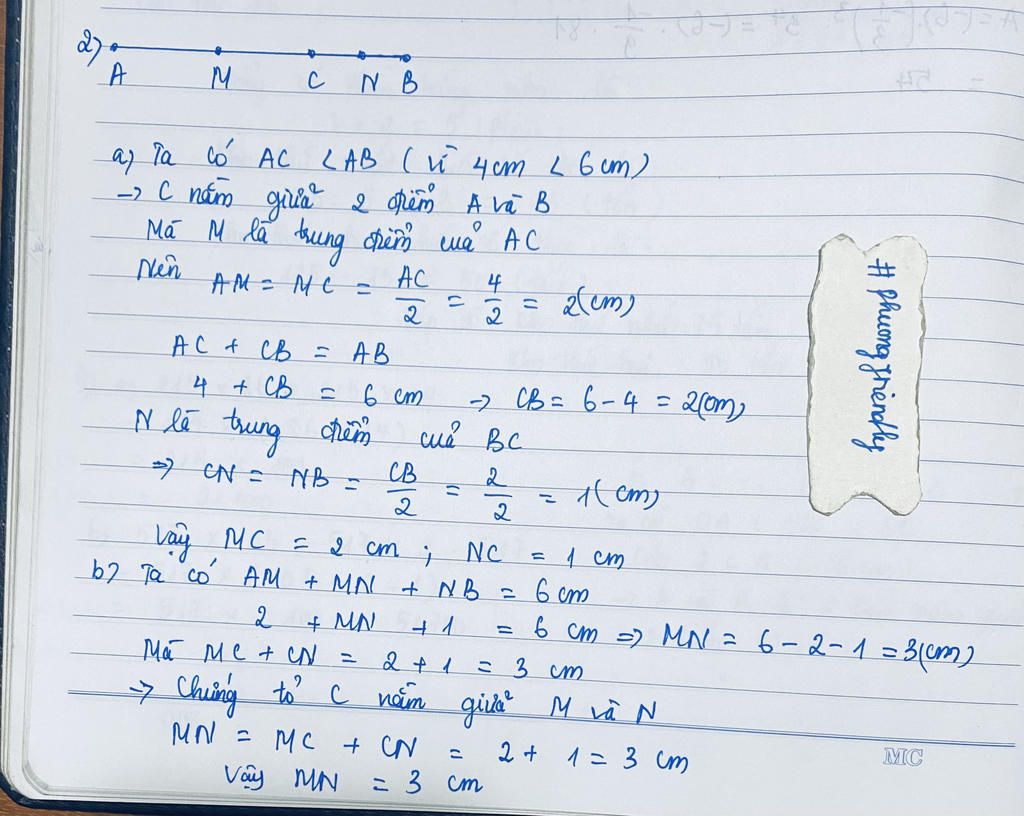 2)
A M C N B
a) Ta có AC < AB (vì 4cm < 6cm)
→ C nằm giữa 2 điểm A và B
Mà M là trung điểm của AC
Nên AM = MC = AC/2 = 4/2 = 2(cm)
AC + CB = AB
4 + CB = 6 cm → CB = 6 - 4 = 2(cm)
N là trung điểm của BC
⇒ CN = NB = CB/2 = 2/2 = 1(cm)
Vậy MC = 2 cm ; NC = 1 cm
b) Ta có AM + MN + NB = 6cm
2 + MN + 1 = 6 cm ⇒ MN = 6 - 2 - 1 = 3(cm)
Mà MC + CN = 2 + 1 = 3 cm
→ Chứng tỏ C nằm giữa M và N
MN = MC + CN = 2 + 1 = 3 cm
Vậy MN = 3 cm
#phuongfriendly
MC